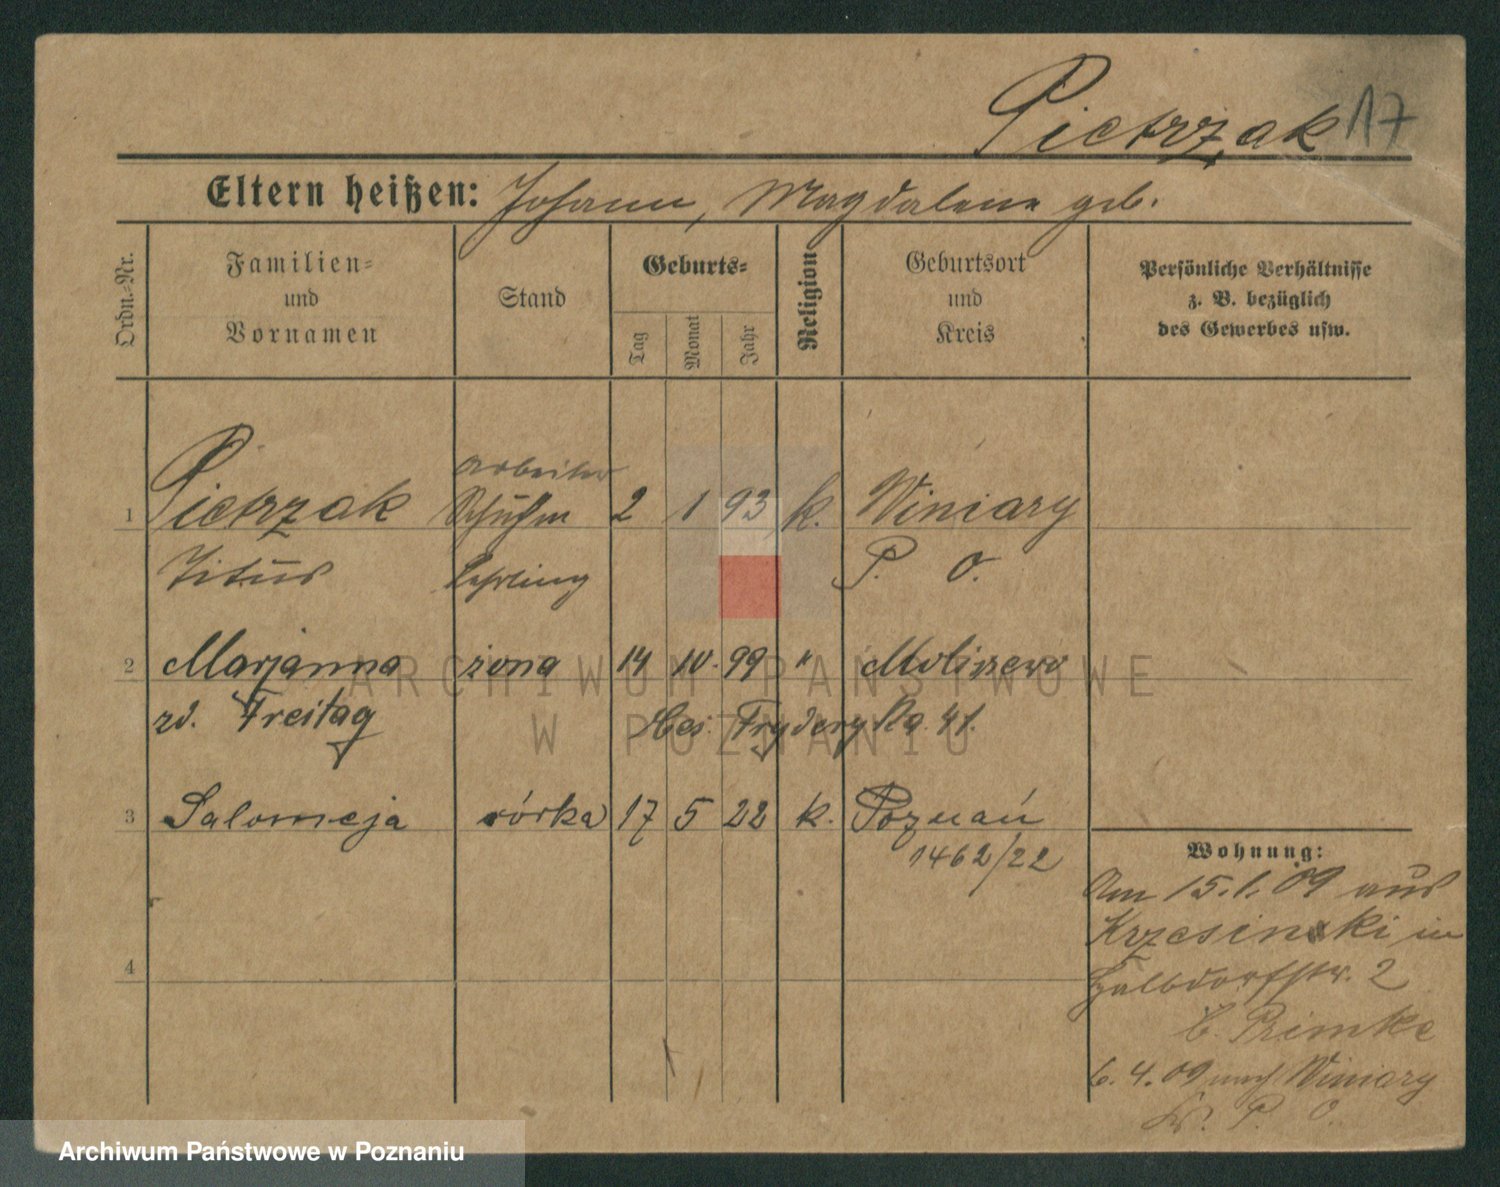 Pietrzak 17
Eltern heißen: Johann, Magdalena geb.
Ordn.-Nr.
Familien-
und
Vornamen
Stand
Geburts-
Tag
Monat
Jahr
Religion
Geburtsort
und
Kreis
Persönliche Verhältnisse
z. B. bezüglich
des Gewerbes usw.
arbeiter
1 Pietrzak Schuhm 2 1 93 k. Winiary
Titus Lehrling P. O.
2 Marjanna żona 14 10. 99 " 
zd. Freitag Fryderyka 41.
3 Salomeja córka 17 5 22 k. Poznań
1462/22
4
Wohnung:
Am 15.1.09 aus
Krzesinki in
Halbdorfstr. 2
b. Primke
6.4.09 nach Winiary
Kr. P. O.
ARCHIWUM PAŃSTWOWE
W POZNANIU
Archiwum Państwowe w Poznaniu